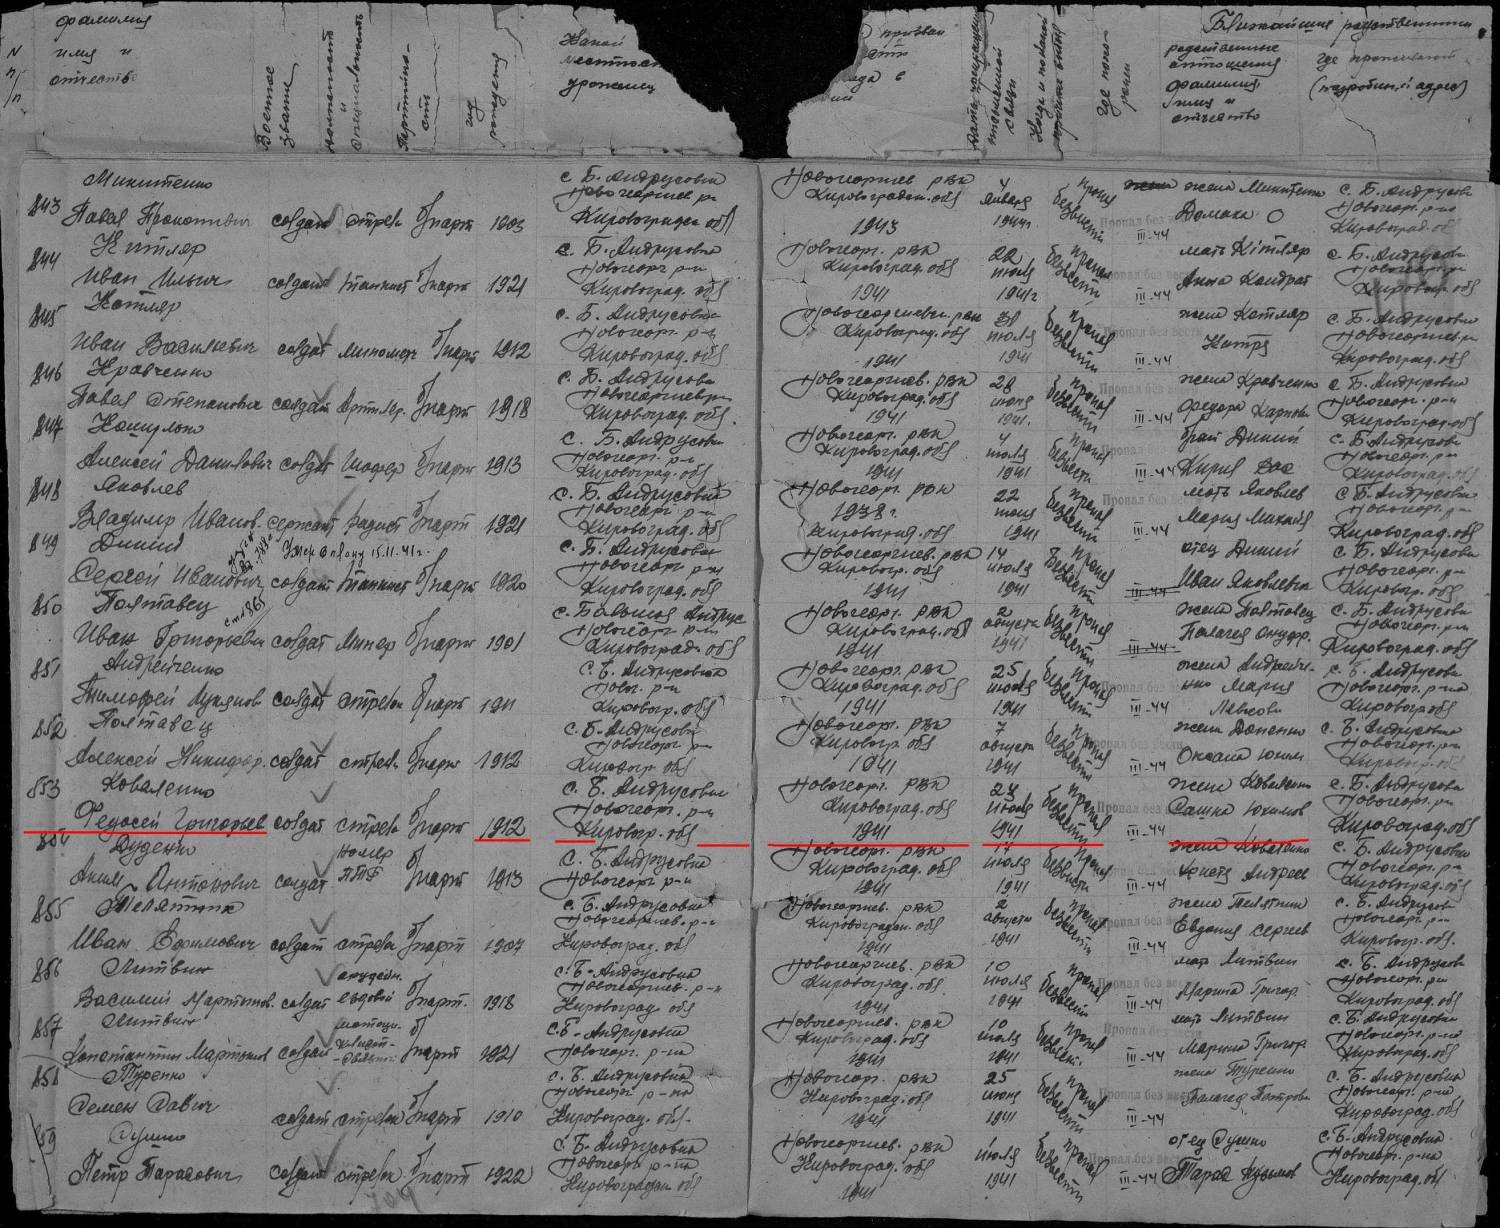 фамилия
имя и
отчество
N
п/п
Военное
звание
должность
и
специальность
Партийно-
сть
год
рождения
Какой
местност
уроженец
призван
Где попо-
рыт
Ближайшие родственники
родственные
отношения
фамилия,
имя и
отчество
где проживают
(подробный адрес)
843 Микитенко
Павел Прокопович солдат стрел б/парт 1903
с Б. Андрусовка
Новогеоргиев р-н
Кировоградск обл
Новогеоргиев рвк
Кировоградск. обл
1943
4
января
1944г.
пропал
безвести
Пропал без вести
III-44
жена Микитенко
Домаха
с. Б. Андрусовк
Новогеор. р-на
Кировоград. обл
844 Китляр
Иван Ильич солдат танкист б/парт 1921
с. Б. Андрусовка
Новогеорг р-н
Кировоград. обл
Новогеорг. рвк
Кировоград. обл
1941
22
июля
1941г
пропал
безвести
III-44
мать Кітляр
Анна Кондрат
с Б. Андрусовк
845 Котляр
Иван Васильевич солдат миномет б/парт 1912
с. Б. Андрусовка
Новогеорг. р-н
Кировоград. обл
Новогеоргиевск. рвк
Кировоград. обл
1941
июля
1941
пропал
безвести
III-44
жена Котляр
с. Б. Андрусовка
846 Кравченко
Павел Степанович солдат Артилер. б/парт 1918
с. Б. Андрусовка
Новогеоргиев р-н
Кировоград. обл.
Новогеоргиев. рвк
Кировоград. обл.
1941
28
июня
1941.
пропал
безвести
III-44
жена Кравченко
Федора Карповн
с Б. Андрусовка
Новогеорг. р-н
Кировоград. обл
847
Алексей Данилович солдат Шофер б/парт 1913
с. Б. Андрусовк
Новогеорг. р-н
Кировоград. обл
Новогеорг. рвк
Кировоград. обл
1941
4
июля
1941
пропал
безвести
III-44
брат Дикий
с. Б Андрусовк
Новогеорг. р-н
Кировоград. обл
848 Яковлев
Владимир Иванов. сержант Радист б/парт 1921
с. Б. Андрусовка
Новогеорг. р-н
Кировоград. обл
Новогеорг. рвк
1938 г.
Кировоград. обл
22
июня
1941
пропал
безвести
III-44
мать Яковлев
Мария Михайл
с Б. Андрусовк
Новогеорг. р-н
Кировоград. обл
849 Дикий
Умер в плену 15.11.41г.
Сергей Иванович солдат танкист б/парт 1920
с. Б. Андрусовка
Новогеорг р-н
Кировоград. обл
Новогеоргиев. рвк
Кировогр. обл
1941
14
июля
1941
пропал
безвести
III-44
отец Дикий
Иван Яковлевич
с Б. Андрусовка
Новогеорг. р-н
Кировогр. обл
850 Полтавец
Иван Григорьевич солдат Минер б/парт 1901
с. Большая Андрус
Новогеорг р-н
Кировоград. обл
Новогеорг. рвк
Кировоград. обл
1941
2
августа
1941
пропал
безвести
III-44
жена Полтавец
Палагея Онуфр.
с. Б. Андрусовк
Новогеорг. р-н
Кировоград. обл
851 Андрейченко
Тимофей Лукянов солдат стрелок б/парт 1911
с. Б. Андрусовка
Новог. р-н
Кировогр. обл
Новогеорг. рвк
Кировоград. обл
1941
25
июля
1941
пропал
безвести
III-44
жена Андрейче-
нко Мария
с. Б. Андрусовка
Новогеорг. р-на
Кировогр обл
852 Полтавец
Алексей Никифор. солдат стрелк б/парт 1912
с. Б. Андрусовка
Новогеорг р-н
Кировогр обл
Новогеорг. рвк
Кировогр обл
1941
7
августа
1941
пропал
безвести
III-44
с. Б. Андрусовка
Новогеорг. р-н
Кировогр. обл
853 Коваленко
Федосей Григорьев солдат стрелк б/парт 1912
с. Б. Андрусовка
Новогеорг. р-н
Кировогр. обл
Новогеорг. рвк
Кировоград. обл
1941
июля
1941
пропал
безвести
Пропал без вести
III-44
жена Коваленко
Сашка Юхимов
с. Б. Андрусовка
Новогеорг. р-н
Кировоград. обл
854 Дуденко
номер
ПТР
Аким Антонович солдат б/парт 1913
с. Б. Андрусовка
Новогеорг р-н
Кировоград. обл
Новогеорг. рвк
1941
17
июля
1941
пропал
безвести
III-44
с. Б. Андрусовка
Новогеорг. р-н
Кировоград. обл
855 Телятник
Иван Ефимович солдат стрелк б/парт 1907
с. Б. Андрусовка
Новогеоргиев. р-н
Кировоград. обл
Новогеоргиев. рвк
Кировоградск. обл
1941
2
августа
1941
пропал
безвести
III-44
жена Телятник
Евдокия Сергеев
с. Б. Андрусовк
Новогеорг. р-н
Кировогр. обл.
856 Литвин
орудейн.
ездовой
Василий Мартынов. солдат б/парт. 1918
с. Б. Андрусовка
Новогеоргиев. р-н
Кировоград обл
Новогеоргиев. рвк
Кировоград. обл.
1941
10
июля
1941
пропал
безвести
III-44
мать Литвин
Марина Григор.
с. Б. Андрусовк
Новогеорг. р-н
Кировоград. обл
857 Литвин
Константин Мартынов солдат б/парт 1921
с. Б. Андрусовка
Новогеорг. р-на
Кировоград. обл
Новогеоргиев. рвк
Кировоград. обл
1941
10
июля
1941
пропал
безвести.
III-44
мать Литвин
Марина Григор
с. Б. Андрусовка
Новогеорг. р-на
Кировоград. обл
858 Туренко
Семен Савич солдат стрелок б/парт 1910
с. Б. Андрусовка
Новогеорг р-на
Кировоград. обл.
Новогеорг. рвк
Кировоград. обл
1941
25
июня
1941
пропал
безвести
III-44
жена Туренко
Палагея Петровн
с. Б. Андрусовка
Новогеорг. р-на
Кировоград. обл
859 Сушко
Петр Тарасович солдат стрелк. б/парт 1922
с. Б. Андрусовка
Новогеорг р-на
Кировоградск обл
Новогеоргиев. рвк
Кировоград. обл
1941
июля
1941
пропал
безвести
III-44
отец Сушко
Тарас Кузьмов
с. Б. Андрусовка
Новогеорг. р-на
Кировоград. обл